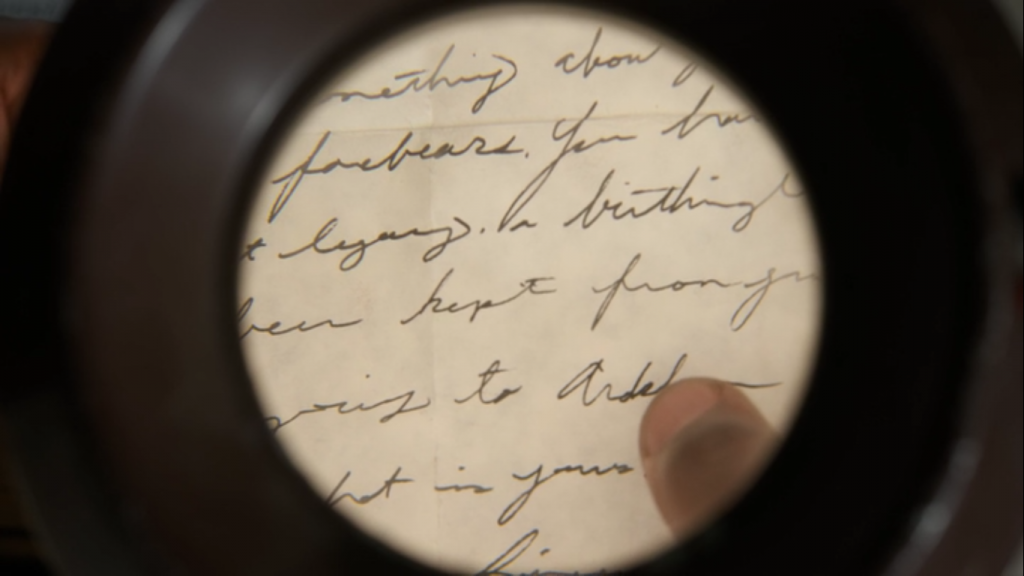 mething abou
forebears. You hav
t legacy. A birthing
been kept from you
to Ardel
hat is yours